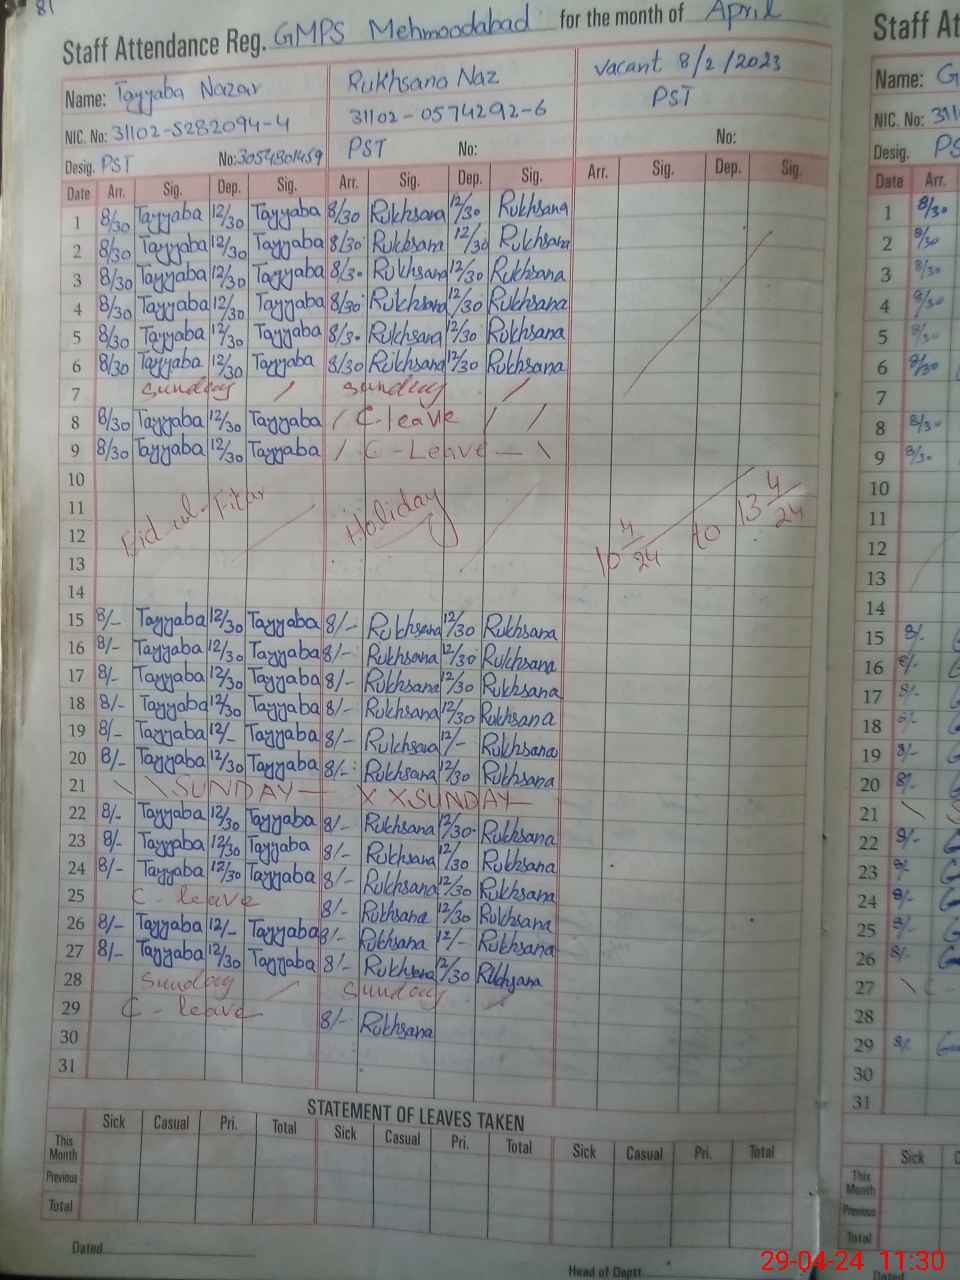 81
Staff Attendance Reg. GMPS Mehmoodabad for the month of April
Name: Tayyaba Nazar Rukhsana Naz vacant 8/2/2023
NIC. No: 31102-5282094-4 31102-0574292-6 PST
Desig. PST No: 3054801459 PST No: No:
Date Arr. Sig. Dep. Sig. Arr. Sig. Dep. Sig. Arr. Sig. Dep. Sig.
1 8/30 Tayyaba 12/30 Tayyaba 8/30 Rukhsana 12/30 Rukhsana
2 8/30 Tayyaba 12/30 Tayyaba 8/30 Rukhsana 12/30 Rukhsana
3 8/30 Tayyaba 12/30 Tayyaba 8/30 Rukhsana 12/30 Rukhsana
4 8/30 Tayyaba 12/30 Tayyaba 8/30 Rukhsana 12/30 Rukhsana
5 8/30 Tayyaba 12/30 Tayyaba 8/30 Rukhsana 12/30 Rukhsana
6 8/30 Tayyaba 12/30 Tayyaba 8/30 Rukhsana 12/30 Rukhsana
7 Sunday / Sunday /
8 8/30 Tayyaba 12/30 Tayyaba / C-leave / /
9 8/30 Tayyaba 12/30 Tayyaba / C-Leave — \
10
11 Eid-ul-Fitar Holiday 10 4/24 to 13 4/24
12
13
14
15 8/- Tayyaba 12/30 Tayyaba 8/- Rukhsana 12/30 Rukhsana
16 8/- Tayyaba 12/30 Tayyaba 8/- Rukhsana 12/30 Rukhsana
17 8/- Tayyaba 12/30 Tayyaba 8/- Rukhsana 12/30 Rukhsana
18 8/- Tayyaba 12/30 Tayyaba 8/- Rukhsana 12/30 Rukhsana
19 8/- Tayyaba 12/- Tayyaba 8/- Rukhsana 12/- Rukhsana
20 8/- Tayyaba 12/30 Tayyaba 8/- Rukhsana 12/30 Rukhsana
21 \ \ SUNDAY — X X SUNDAY —
22 8/- Tayyaba 12/30 Tayyaba 8/- Rukhsana 12/30 Rukhsana
23 8/- Tayyaba 12/30 Tayyaba 8/- Rukhsana 12/30 Rukhsana
24 8/- Tayyaba 12/30 Tayyaba 8/- Rukhsana 12/30 Rukhsana
25 C-leave 8/- Rukhsana 12/30 Rukhsana
26 8/- Tayyaba 12/- Tayyaba 8/- Rukhsana 12/- Rukhsana
27 8/- Tayyaba 12/30 Tayyaba 8/- Rukhsana 12/30 Rukhsana
28 Sunday / Sunday
29 C-leave 8/- Rukhsana
30
31
STATEMENT OF LEAVES TAKEN
Sick Casual Pri. Total Sick Casual Pri. Total Sick Casual Pri. Total
This Month
Previous
Total
Dated
Head of Deptt.
Staff At
Name: G
NIC. No: 311
Desig. PS
Date Arr.
1 8/30
2 8/30
3 8/30
4 8/30
5 8/30
6 8/30
7
8 8/30
9 8/30
10
11
12
13
14
15 8/-
16 8/-
17 8/-
18 8/-
19 8/-
20 8/-
21 \
22 8/-
23 8/-
24 8/-
25 8/-
26 8/-
27 \
28
29 8/-
30
31
Sick
This Month
Previous
Total
Dated
29-04-24 11:30